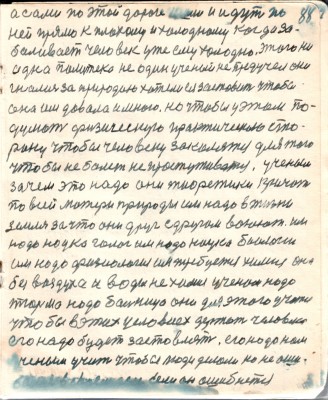 а сами по этой дороге шли и идут по
ней прямо к плохому и холодному когда за-
баливает человек уже ему холодно. Этого ни
одна политека не один ученый не придумал они
гнались за природою хотели заставить чтобы
она им давала и много. но чтобы у этом по-
думать физическую практическую сто-
рону чтобы человеку закалять для того
чтобы не болеть не простуживать, ученым
зачем это надо они теоретики кричат
по всей матери природы им надо в жизни
земля за что они друг с другом воюют. им
надо наука геолог им надо наука биологи
им надо физиология им требуется химия она
без воздуха и воды не химия ученым надо
тюрма надо больница они для этого учат
чтобы в этих условиях держат человека
его надо будет заставлять. его надо нам
ученым учит чтобы люди делали но не оши-
если он ошибнется
88